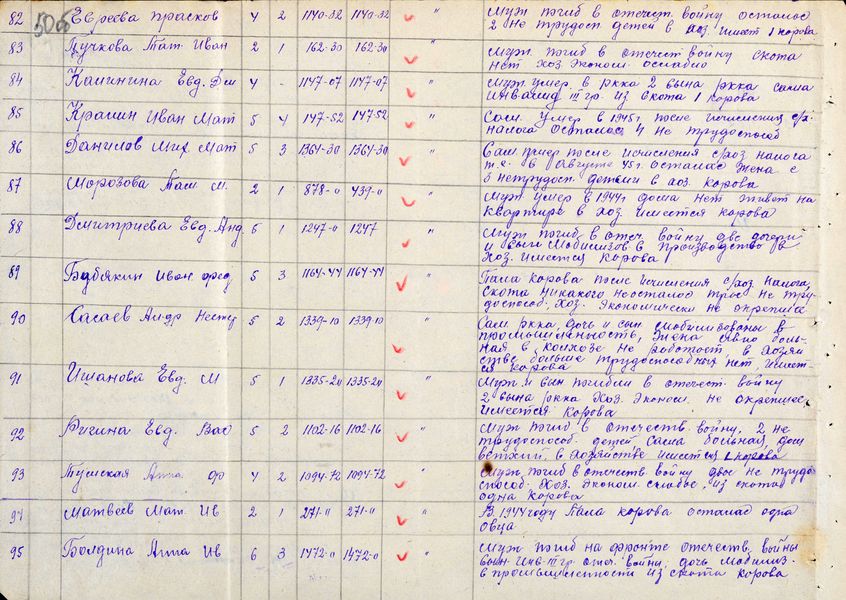 82 Евреева Прасков 4 2 1140-32 1140-32 " Муж погиб в отечест. войну осталос
50об 2 не трудосп детей в хоз. имеет 1 корова
83 Пучкова Тат Иван 2 1 162-30 162-30 " Муж погиб в отечест войну скота
нет хоз. эконом. ослабло
84 Калинина Евд. Дм 4 - 1147-07 1147-07 " Муж умер. в ркка 2 сына ркка сама
инвалид III гр. из скота 1 корова
85 Крапин Иван Мат 5 4 147-52 147-52 " Сам. умер в 1945г. после исчисления с/х.
налога осталас 4 не трудоспособ
86 Данилов Мих Мат 5 3 1364-30 1364-30 " Сам умер после исчисления с/хоз налога
т.е. в августе 45 г. осталас жена с
3 нетрудосп. детьми в хоз. корова
87 Морозова Тат М. 2 1 878-0 439-0 " Муж умер в 1944г дома нет живет на
квартире в хоз имеется корова
88 Дмитриева Евд. Анд 5 1 1247-0 1247 " Муж погиб в отеч. войну две дочери
и сын мобилизов в производство в
хоз. имеется корова
89 Бубякин Иван фед 5 3 1164-44 1164-44 " Пала корова после исчисления с/хоз налога,
скота никакого неосталос трое не тру-
доспособ. хоз. экономически не окрепшее
90 Сасаев Андр Несту 5 2 1339-10 1339-10 Сам ркка, дочь и сын мобилизованы в
промышленность, жена боль-
ная в колхозе не работает в хозяй
стве больше трудоспособных нет, имеет-
ся корова
91 Ишанова Евд. М 5 1 1335-20 1335-20 " Муж и сын погибли в отечест войну
2 сына ркка хоз. эконом. не окрепшее,
имеется корова
92 Фигина Евд. Вас 5 2 1102-16 1102-16 " Муж погиб в отечеств. войну, 2 не
трудоспособ. детей, сама больная, дом
ветхий. в хозяйстве имеется 1 корова
93 Анна Ф 4 2 1094-72 1094-72 " Муж погиб в отечеств войну двое не трудо
способ. хоз. эконом слабое, из скота
одна корова
94 Матвеев Мат Ив 2 1 271-0 271-0 " В 1944 году пала корова осталас одна
овца
95 Болдина Анна Ив 6 3 1472-0 1472-0 " Муж погиб на фронте отечеств. войны
сын инв. III гр. отеч. войны, дочь мобилиз-
в промышленности из скота корова